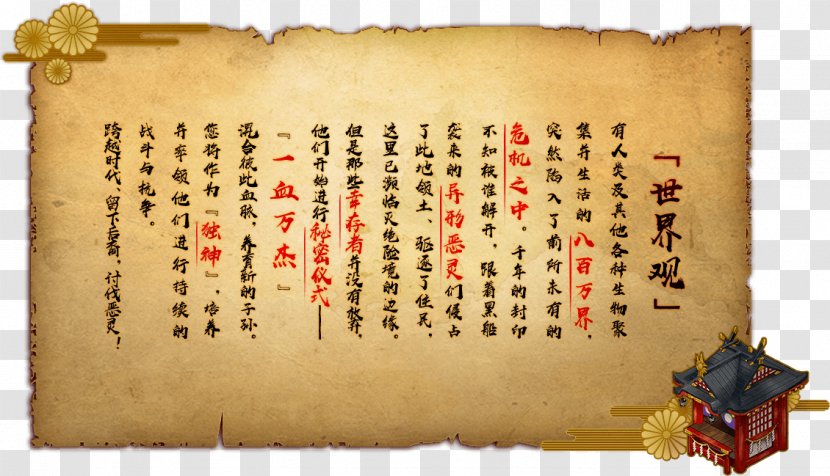 「世界观」
有人类及其他各种生物聚
集并生活的八百万界，
突然陷入了前所未有的
危机之中。千年的封印
不知被谁解开，跟着黑船
袭来的异形恶灵们侵占
了此地领土、驱逐了住民，
这里已濒临灭绝险境的边缘。
但是那些幸存者并没有放弃，
他们开始进行秘密仪式——
『一血万杰』
混合彼此血脉，养育新的子孙。
您将作为『独神』，培养
并率领他们进行持续的
战斗与抗争。
跨越时代、留下后裔，讨伐恶灵！